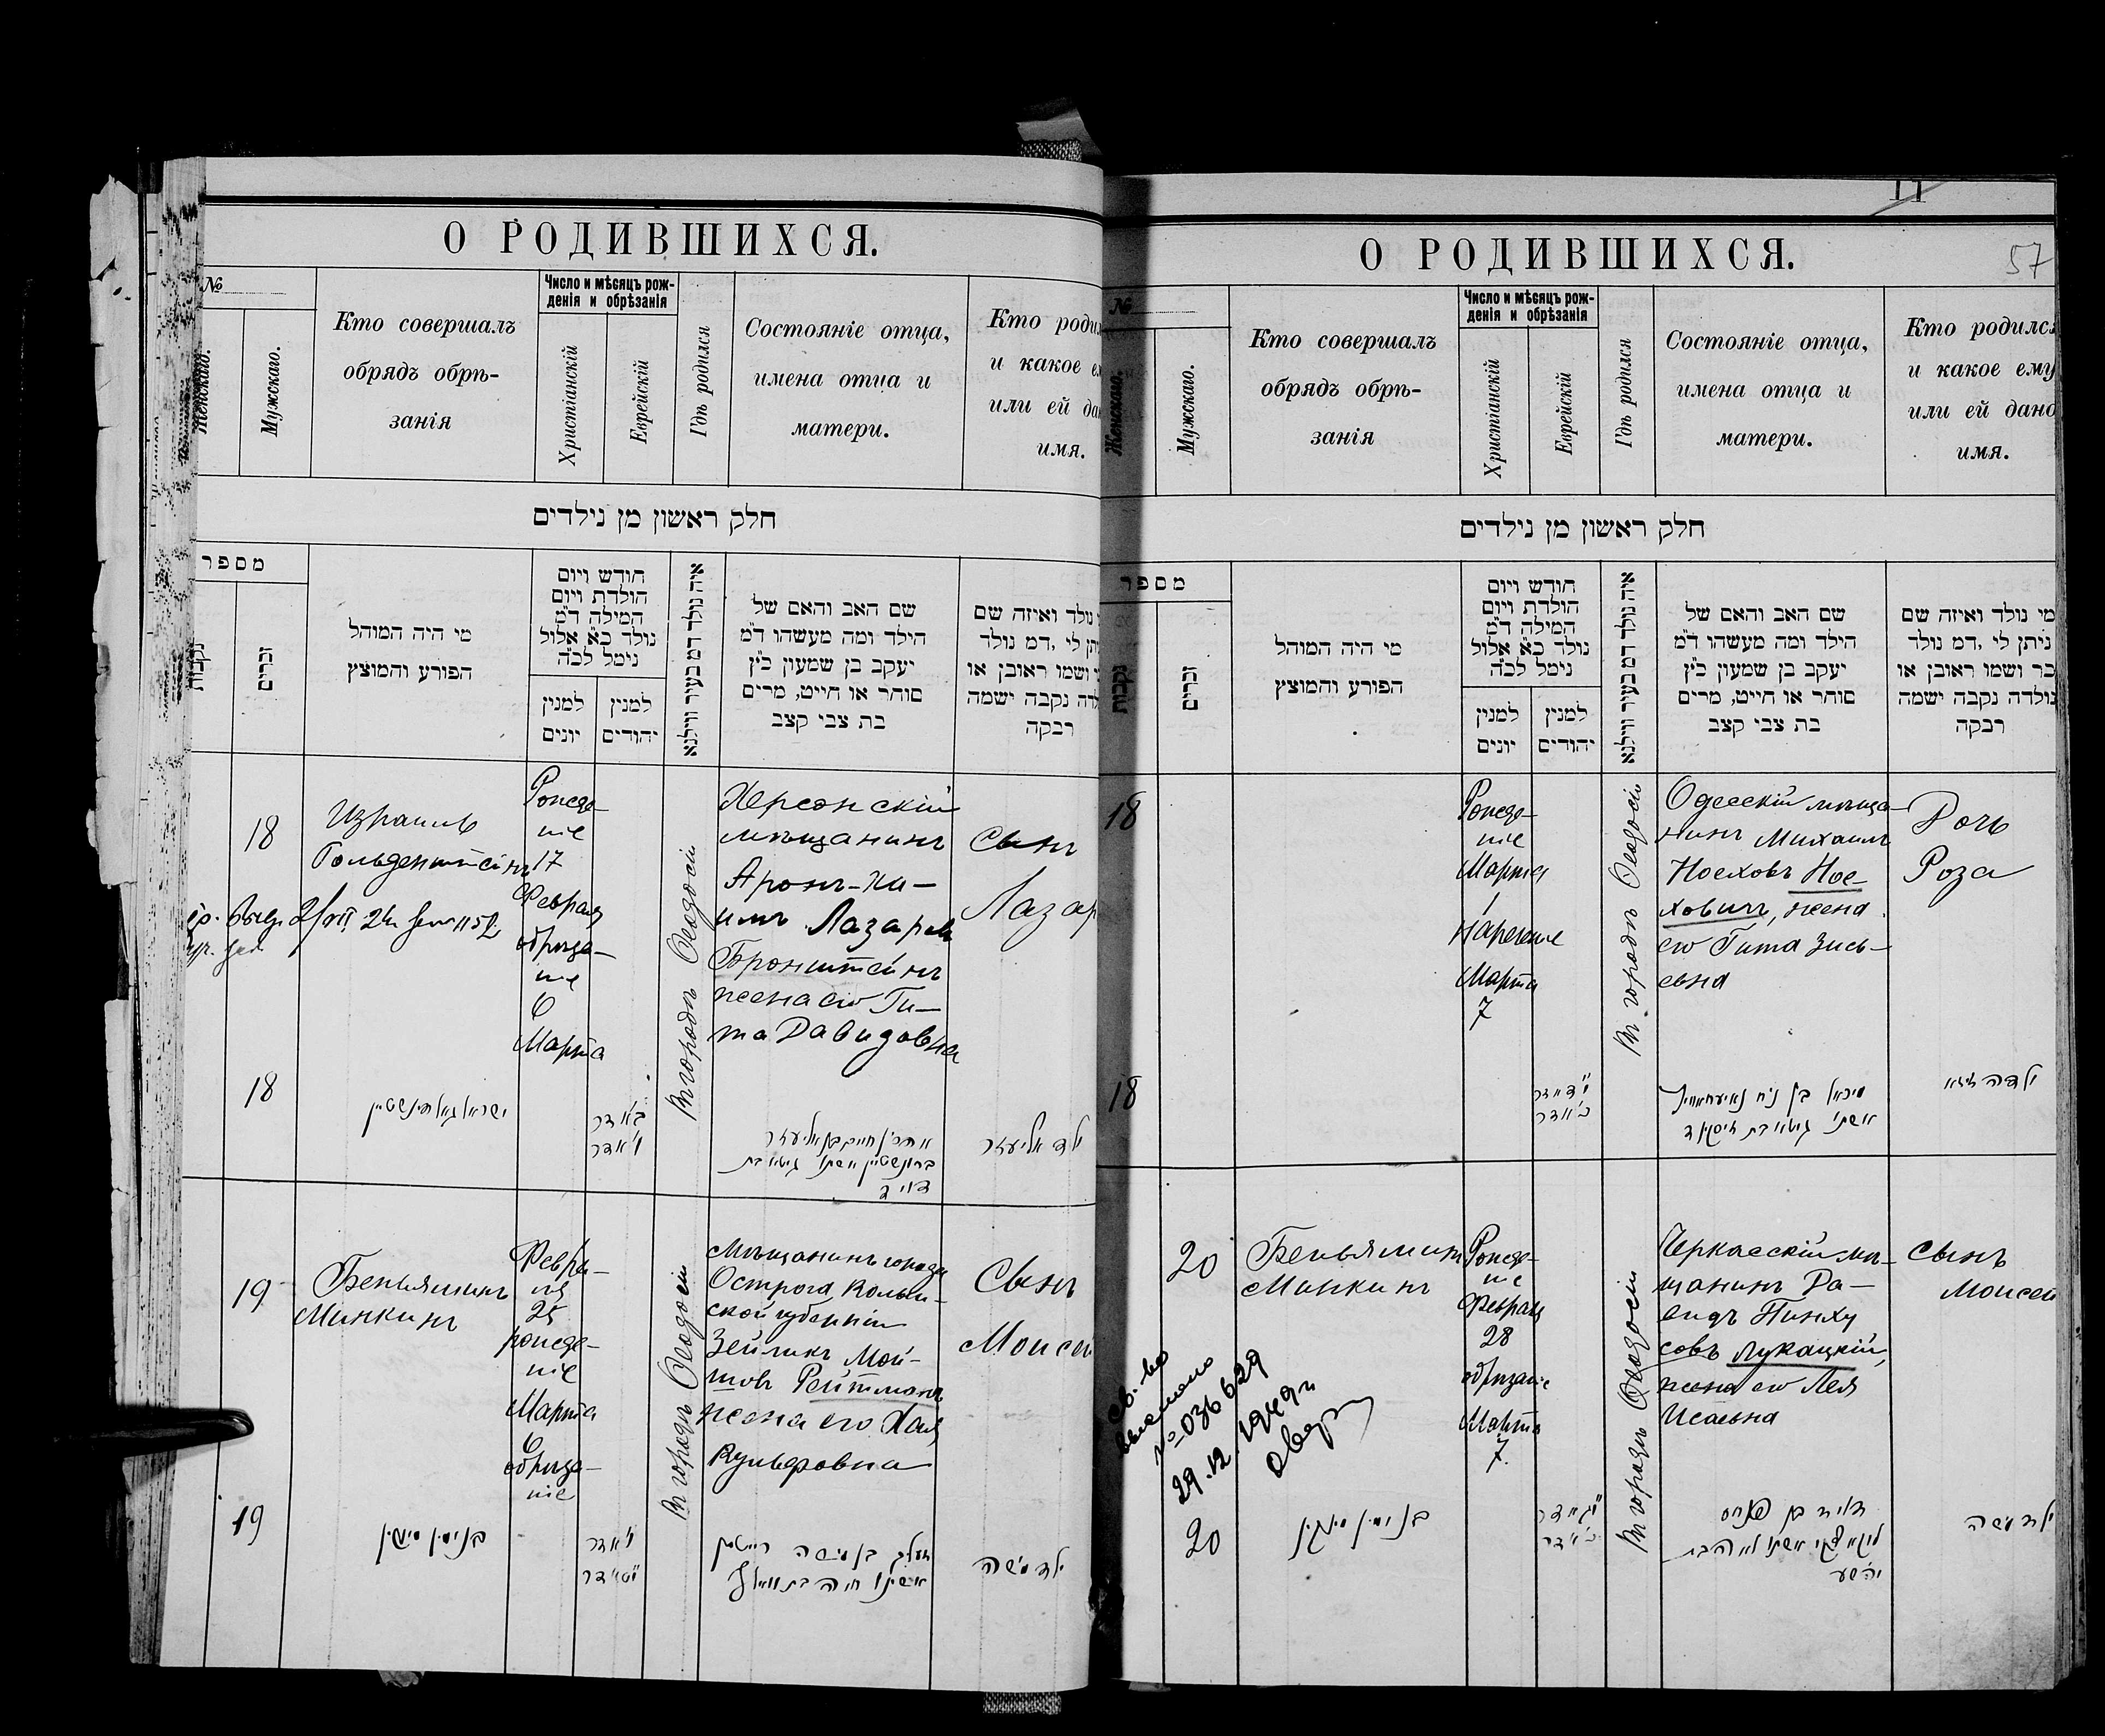 О РОДИВШИХСЯ.
№
Женскаго.
Мужскаго.
Кто совершалъ
обрядъ обрѣ-
занія
Число и мѣсяцъ рож-
денія и обрѣзанія
Христіанскій
Еврейскій
Гдѣ родился
Состояніе отца,
имена отца и
матери.
Кто родил
и какое е
или ей да
имя.
חלק ראשון מן נילדים
מספר
נקבות
זכרים
מי היה המוהל
הפורע והמוצץ
חודש ויום
הולדת ויום
המילה ד״מ
נולד כ״א אלול
נימל לכ״ה
למנין
יונים
למנין
יהודים
איה נולד דמ בעיר ווילנא
שם האב והאם של
הילד ומה מעשהו ד״מ
יעקב בן שמעון כ״ץ
סוחר או חייט, מרים
בת צבי קצב
נולד ואיזה שם
תן לי ,דמ נולד
ושמו ראובן או
לדה נקבה ישמה
רבקה
18
Израиль
Гольденштейнъ
Рожде-
ніе
17
Февраля
обрѣза-
ніе
6
Марта
Въ городѣ Ѳеодосіи
Херсонскій
мѣщанинъ
Аронъ-Ха-
имъ Лазаревъ
Бронштейнъ
жена его Ги-
та Давидовна
Сынъ
Лазар
18
ישראל גאלדענשטיין
ב׳ אדר
י״ אדר
אהרן חיים בן אליעזר
ברונשטיין אשתו גיטא בת
דוד
ילד אליעזר
19
Беньяминъ
Минкинъ
Февра-
ля
25
рожде-
ніе
Марта
6
обрѣза-
ніе
Въ городѣ Ѳеодосіи
Мѣщанинъ города
Острога Волын-
ской губерніи
Зейликъ Мой-
шовъ Рейтманъ
жена его Хая
Вульфовна
Сынъ
Моисей
19
בנימין מינקין
אדר
אדר
זעליג בן משה רייטמן
אשתו חיה בת וואלף
ילד משה
11
57
О РОДИВШИХСЯ.
№
Женскаго.
Мужскаго.
Кто совершалъ
обрядъ обрѣ-
занія
Число и мѣсяцъ рож-
денія и обрѣзанія
Христіанскій
Еврейскій
Гдѣ родился
Состояніе отца,
имена отца и
матери.
Кто родился
и какое ему
или ей дано
имя.
חלק ראשון מן נילדים
מספר
נקבות
זכרים
מי היה המוהל
הפורע והמוצץ
חודש ויום
הולדת ויום
המילה ד״מ
נולד כ״א אלול
נימל לכ״ה
למנין
יונים
למנין
יהודים
איה נולד דמ בעיר ווילנא
שם האב והאם של
הילד ומה מעשהו ד״מ
יעקב בן שמעון כ״ץ
סוחר או חייט, מרים
בת צבי קצב
מי נולד ואיזה שם
ניתן לי ,דמ נולד
כר ושמו ראובן או
נולדה נקבה ישמה
רבקה
18
Рожде-
ніе
Марта
1
нареченіе
Марта
7
Въ городѣ Ѳеодосіи
Одесскій мѣща-
нинъ Михаилъ
Ноеховъ Ное-
ховичъ, жена
его Гита Зись-
евна
Дочь
Роза
18
אדר
אדר
מיכאל בן נח
אשתו גיטא בת
ילדה רוזא
20
Беньяминъ
Минкинъ
Рожде-
ніе
Февраля
28
обрѣзаніе
Марта
7.
Въ городѣ Ѳеодосіи
Черкасскій мѣ-
щанинъ Да-
видъ Пинху
совъ Лукацкій,
жена его Лея
Исаевна
сынъ
Моисей
Св-во
выслано
№ 036629
29.12.1949г
20
בנימין מינקין
אדר
אדר
דוד בן פנחס
לוקאצקי אשתו לאה בת
ילד משה